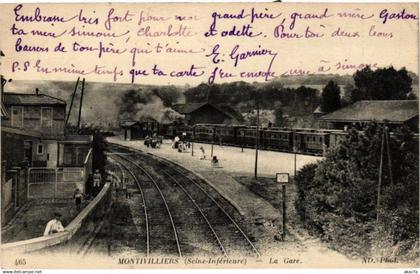 Embrasse très fort pour moi grand père, grand mère Gaston
ta mère Simone, Charlotte et Odette. Pour toi deux bons
baisers de ton père qui t'aime E. Garnier
P.S En même temps que ta carte j'en envoie une à Simone.
465
MONTIVILLIERS (Seine-Inférieure)
La Gare.
ND. Phot.